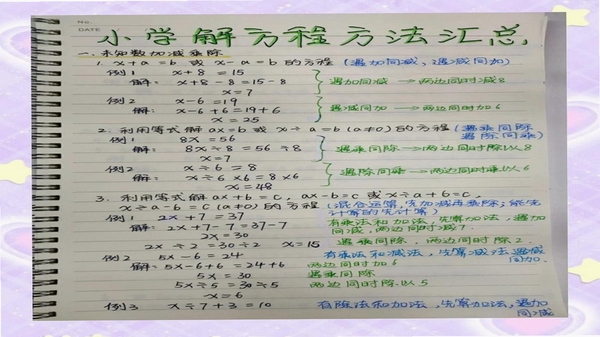 No.
DATE
小学解方程方法汇总
一、未知数加减乘除
1. x+a=b 或 x-a=b 的方程 (遇加同减，遇减同加)
例1 x+8=15
解: x+8-8=15-8 遇加同减 → 两边同时减8
x=7
例2 x-6=19
解: x-6+6=19+6 遇减同加 → 两边同时加6
x=25
2. 利用等式解 ax=b 或 x÷a=b (a≠0) 的方程 (遇乘同除 遇除同乘)
例1 8x=56
解: 8x÷8=56÷8 遇乘同除 → 两边同时除以8
x=7
例2 x÷6=8
解: x÷6×6=8×6 遇除同乘 → 两边同时乘以6
x=48
3. 利用等式解 ax+b=c, ax-b=c 或 x÷a+b=c,
x÷a-b=c (a≠0) 的方程 (混合运算, 先加减再乘除; 能先计算的先计算)
例1 2x+7=37 有乘法和加法, 先算加法, 遇加
解: 2x+7-7=37-7 同减, 两边同时减7.
2x=30
2x÷2=30÷2 x=15 遇乘同除, 两边同时除2.
例2 5x-6=24 有乘法和减法, 先算减法遇减同加.
解: 5x-6+6=24+6 两边同时加6
5x=30 遇乘同除
5x÷5=30÷5 两边同时除以5
x=6
例3 x÷7+3=10 有除法和加法, 先算加法, 遇加同减